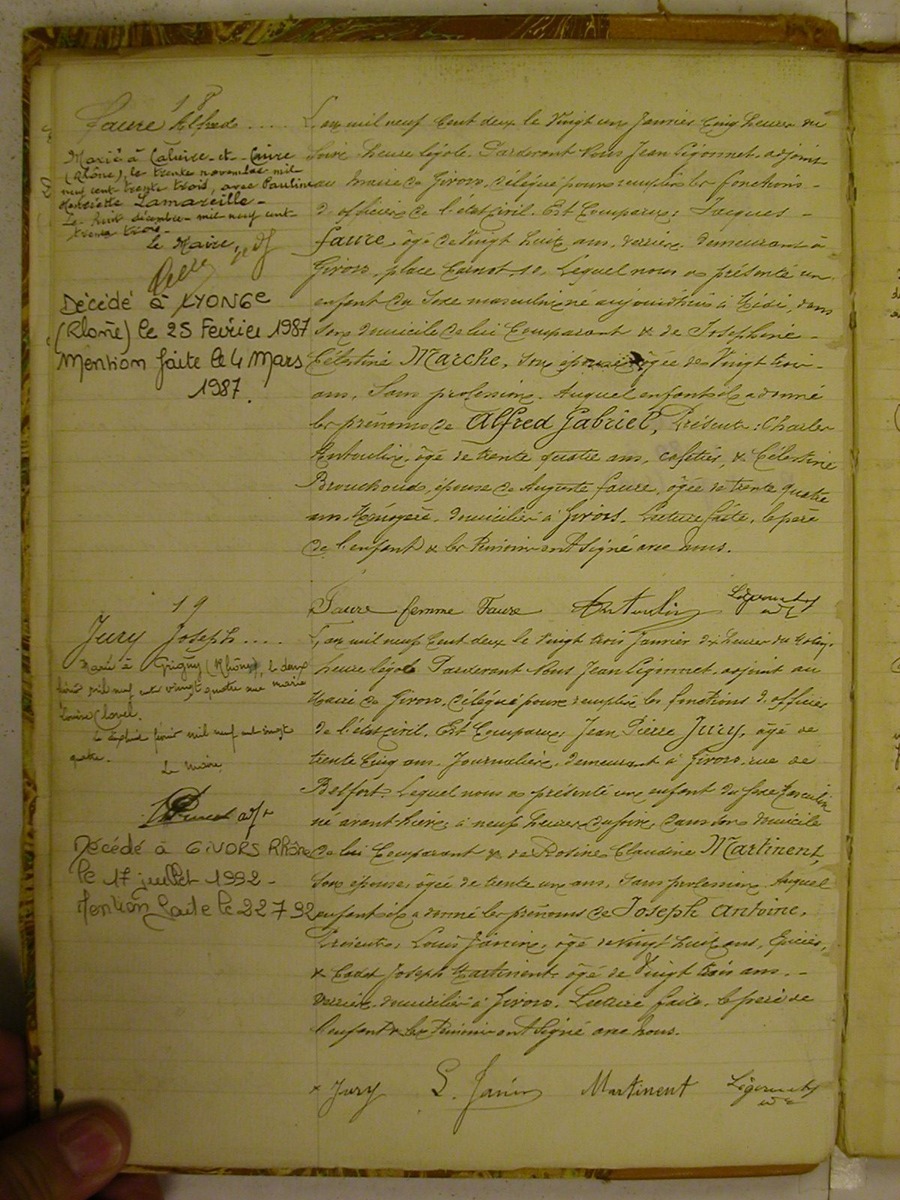 18
Faure Alfred
Marié à Caluire-et-Cuire
(Rhône), le trente novembre mil
neuf cent trente trois, avec Pauline
Henriette Lamareille -
Le huit décembre mil neuf cent
trente trois -
Le Maire,
Décédé à LYON 6e
(Rhône) le 25 Février 1987
Mention faite le 4 Mars
1987.
L'an mil neuf cent deux le vingt un Janvier cinq heures du
soir, heure légale. Pardevant Nous Jean adjoint
au Maire de Givors, délégué pour remplir les fonctions -
d'officier de l'état civil. Est Comparu: Jacques -
Faure, âgé de vingt huit ans, verrier, demeurant à
Givors, place Carnot, 10. Lequel nous a présenté un
enfant du sexe masculin, né aujourd'hui à Midi, dans
son domicile de lui Comparant & de Joséphine -
Célestine Marche, son épouse, âgée de vingt trois -
ans, sans profession. Auquel enfant il a donné
les prénoms de Alfred Gabriel, Présents: Charles
âgé de trente quatre ans, cafetier, & Célestine
Brouchoud, épouse de Auguste Faure, âgée de trente quatre
ans, Ménagère, domiciliés à Givors. Lecture faite, le père
de l'enfant & les témoins ont signé avec nous.
Faure femme Faure
19
Jury Joseph ....
Marié à Grigny (Rhône), le deux
février mil neuf cent vingt quatre avec Marie
Louise Clavel.
Le février mil neuf cent vingt
quatre.
Le Maire
Décédé à GIVORS Rhône
le 17 juillet 1992 -
Mention faite le 22 7 92
L'an mil neuf cent deux le vingt trois Janvier dix heures du matin,
heure légale Pardevant Nous Jean adjoint au
Maire de Givors, délégué pour remplir les fonctions d'officier
de l'état civil. Est Comparu Jean Pierre Jury, âgé de
trente cinq ans, Journalier, demeurant à Givors, rue de
Belfort. Lequel nous a présenté un enfant du sexe Masculin
né avant hier, à neuf heures du soir, dans son domicile
de lui Comparant & de Rosine Claudine Martinent,
son épouse, âgée de trente un ans, sans profession. Auquel
enfant il a donné les prénoms de Joseph Antoine.
Présents, Louis Janin, âgé de vingt huit ans, Epicier,
& Cadet Joseph Martinent, âgé de vingt trois ans, -
verrier, domiciliés à Givors. Lecture faite, le père de
l'enfant & les témoins ont signé avec nous.
x Jury L. Janin Martinent